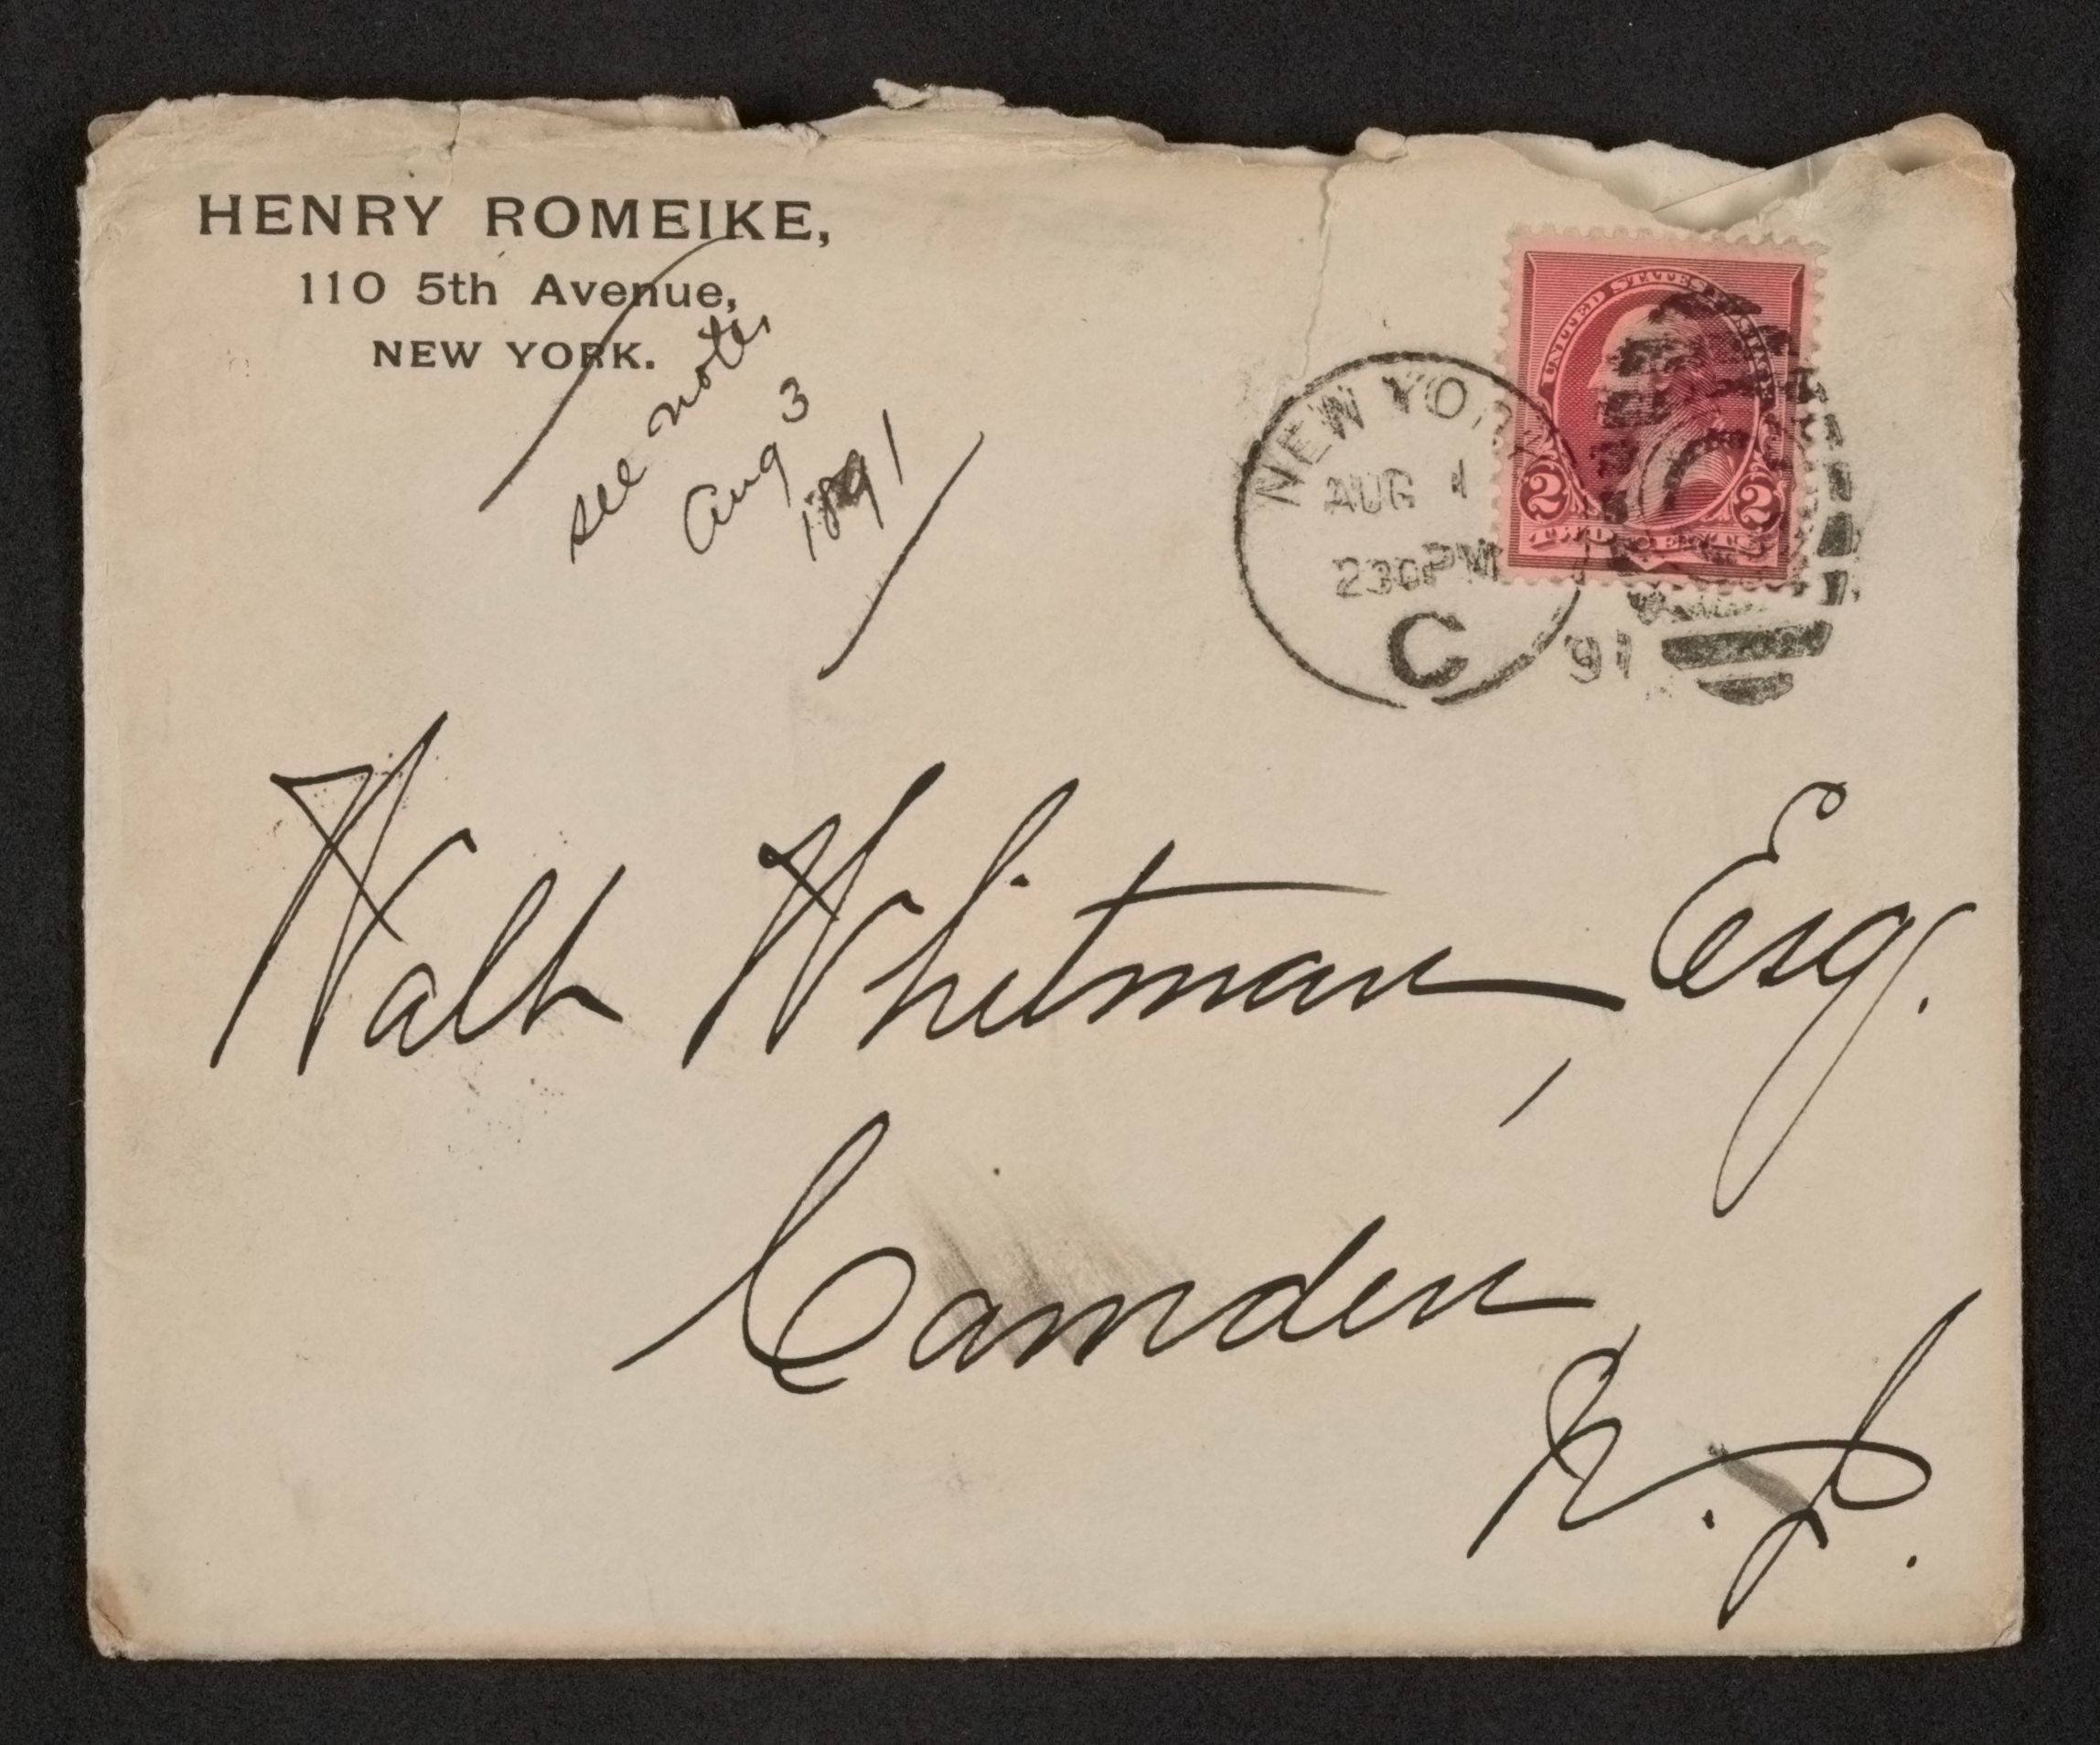 HENRY ROMEIKE,
110 5th Avenue,
NEW YORK.
see notes
Aug 3
1891
UNITED STATES POSTAGE
2 2
TWO CENTS
NEW YORK
AUG 1
230PM
C
91
Walt Whitman, Esq.
Camden
N. J.